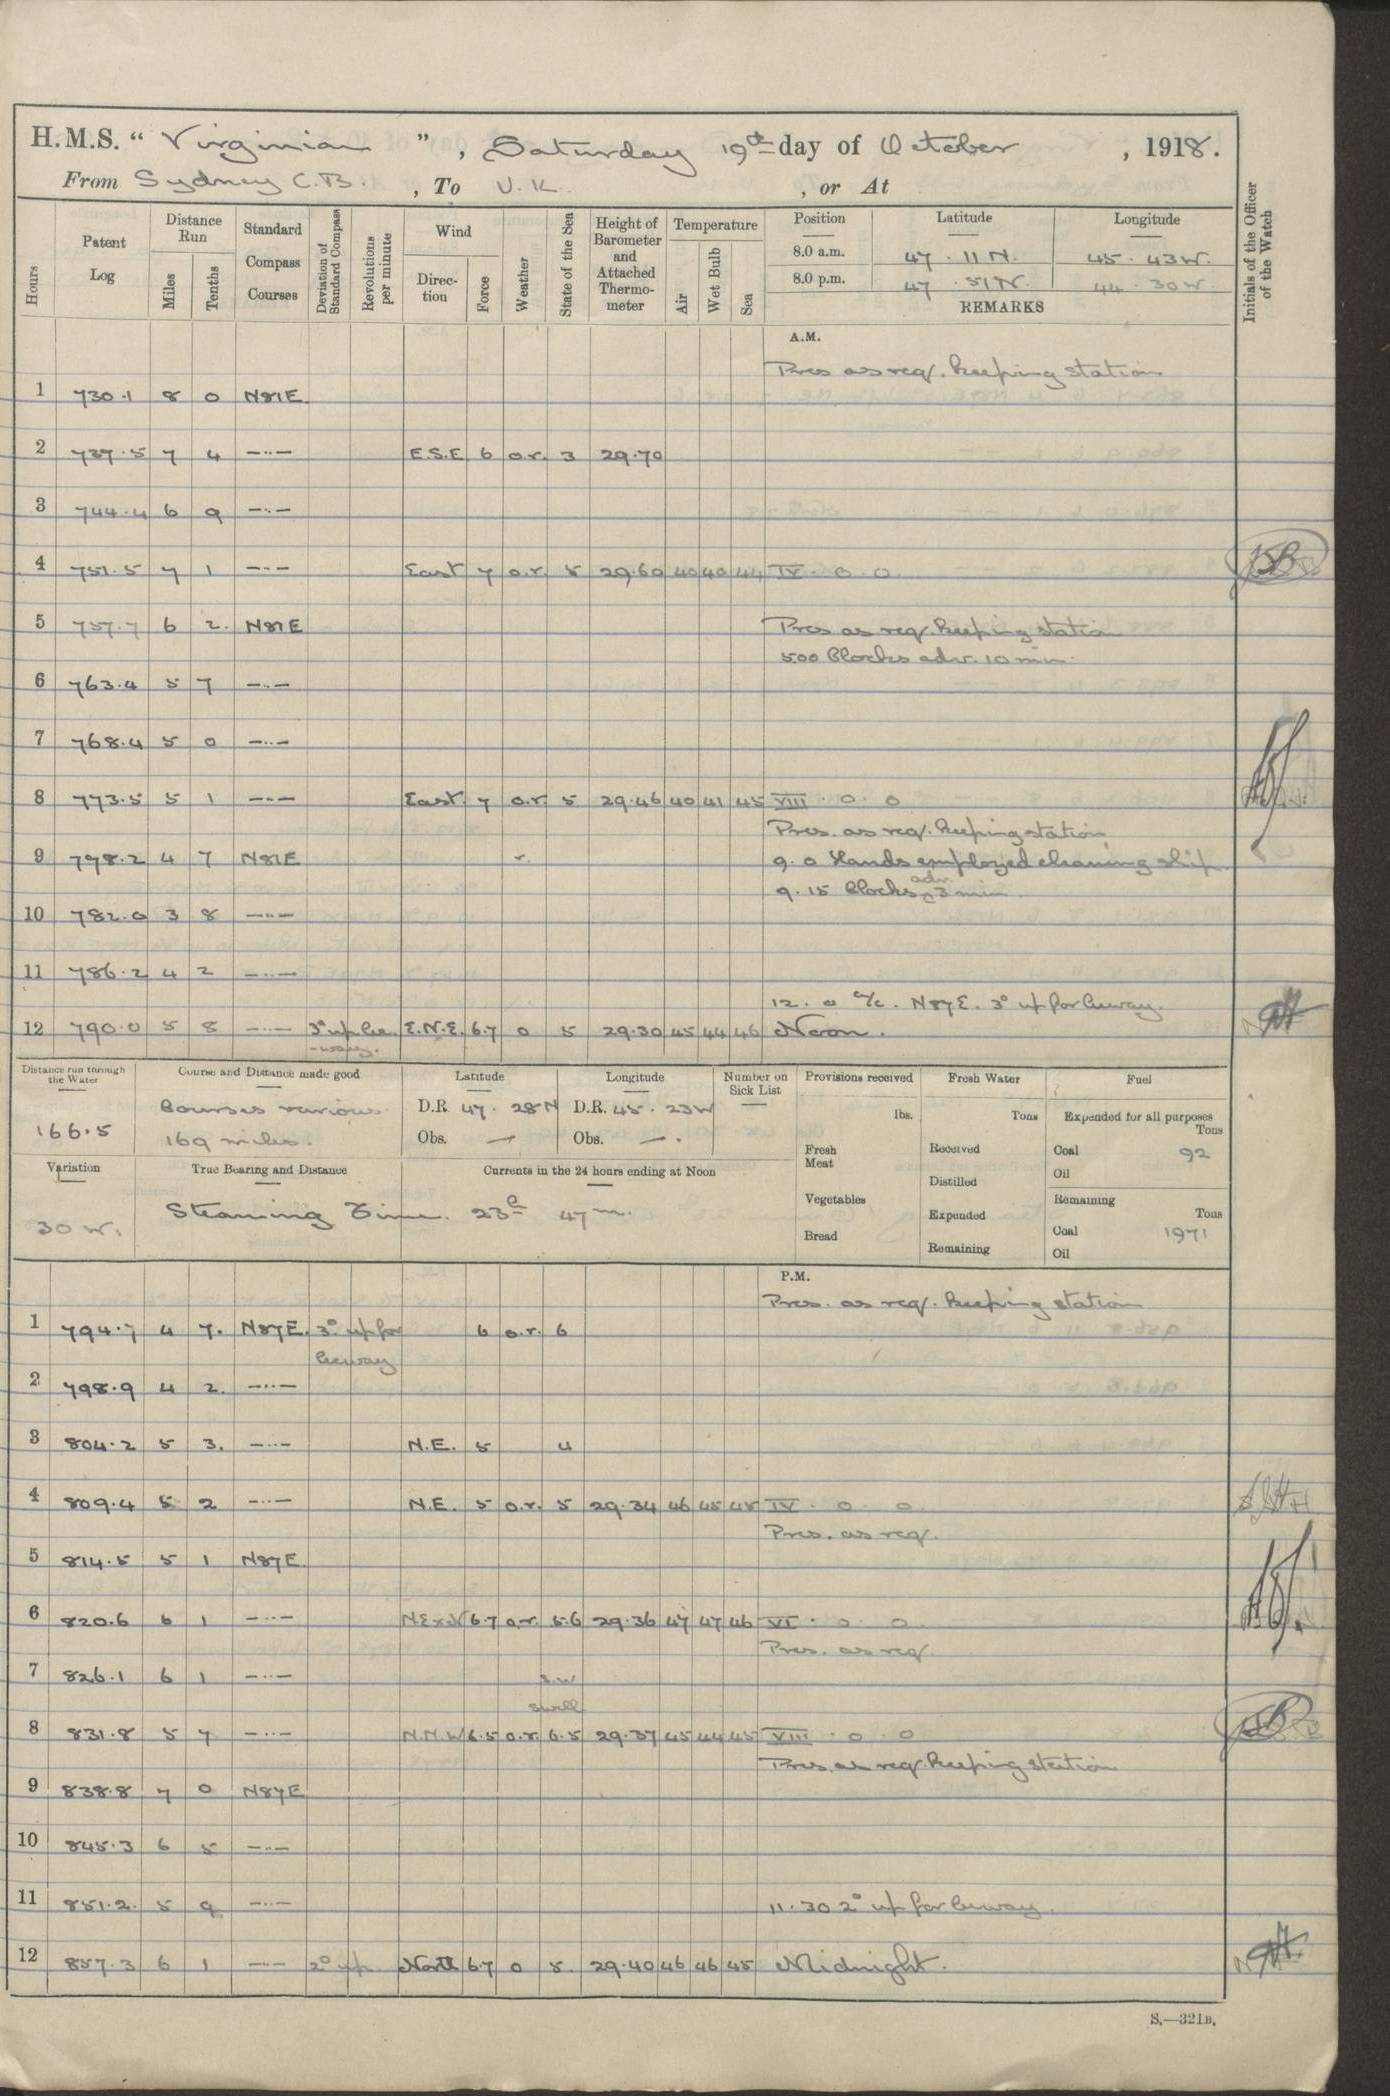 H.M.S. “ Virginian ” , Saturday 19th day of October , 1918.
From Sydney C.B. , To U.K. , or At
Hours Patent Log Distance Run Miles Tenths Standard Compass Courses Deviation of Standard Compass Revolutions per minute Wind Direction Force Weather State of the Sea Height of Barometer and Attached Thermometer Temperature Air Wet Bulb Sea Position Latitude Longitude Initials of the Officer of the Watch
8.0 a.m. 47 . 11 N. 45 . 43 W.
8.0 p.m. 47 . 51 N. 44 . 30 W.
REMARKS
A.M.
Pres as req. keeping station
1 730.1 8 0 N81E
2 737.5 7 4 —..— E.S.E 6 o.r. 3 29.70
3 744.4 6 9 —..—
4 751.5 7 1 —..— East 7 o.r. 5 29.60 40 40 44 IV . 0 . 0.
5 757.7 6 2. N81E Pres as req. keeping station
500 Clocks adv. 10 min.
6 763.4 5 7 —..—
7 768.4 5 0 —..—
8 773.5 5 1 —..— East 7 o.r. 5 29.46 40 41 45 VIII . 0 . 0
Pres. as req. keeping station
9 798.2 4 7 N81E r. 9. 0 Hands employed cleaning ship.
9. 15 Clocks adv. 3 min.
10 782.0 3 8 —..—
11 786.2 4 2 —..—
12. 0 a/c. N87E. 3° up for leeway.
12 790.0 5 8 —..— 3° up lee E.N.E. 6.7 0 5 29.30 45 44 46 Noon.
-way.
Distance run through the Water Course and Distance made good Latitude Longitude Number on Sick List Provisions received Fresh Water Fuel
166.5 Courses various. D.R. 47 . 28 N D.R. 45 . 23 W lbs. Tons Expended for all purposes Tons
169 miles. Obs. — Obs. — . Fresh Meat Received Coal 92
Oil
Variation True Bearing and Distance Currents in the 24 hours ending at Noon Distilled
Vegetables Remaining Tons
30 W. Steaming Time. 23h 47m. Expended
Bread Coal 1971
Remaining Oil
P.M.
Pres. as req. keeping station
1 794.7 4 7. N87E. 3° up for 6 o.r. 6
leeway
2 798.9 4 2. —..—
3 804.2 5 3. —..— N.E. 5 4
4 809.4 5 2 —..— N.E. 5 o.r. 5 29.34 46 45 45 IV . 0 . 0
Pres. as req.
5 814.5 5 1 N87E.
6 820.6 6 1 —..— NExN 6.7 o.r. 5.6 29.36 47 47 46 VI . 0 . 0
Pres. as req.
7 826.1 6 1 —..— S.W
swell
8 831.8 5 7 —..— N.N.W 6.5 o.r. 6.5 29.37 45 44 45 VIII . 0 . 0
Pres. as req. keeping station
9 838.8 7 0 N87E
10 845.3 6 5 —..—
11 851.2. 5 9 —..— 11.30 2° up for leeway.
12 857.3 6 1 —..— 2° up North 6.7 0 5 29.40 46 46 45 Midnight.
S.—321B.